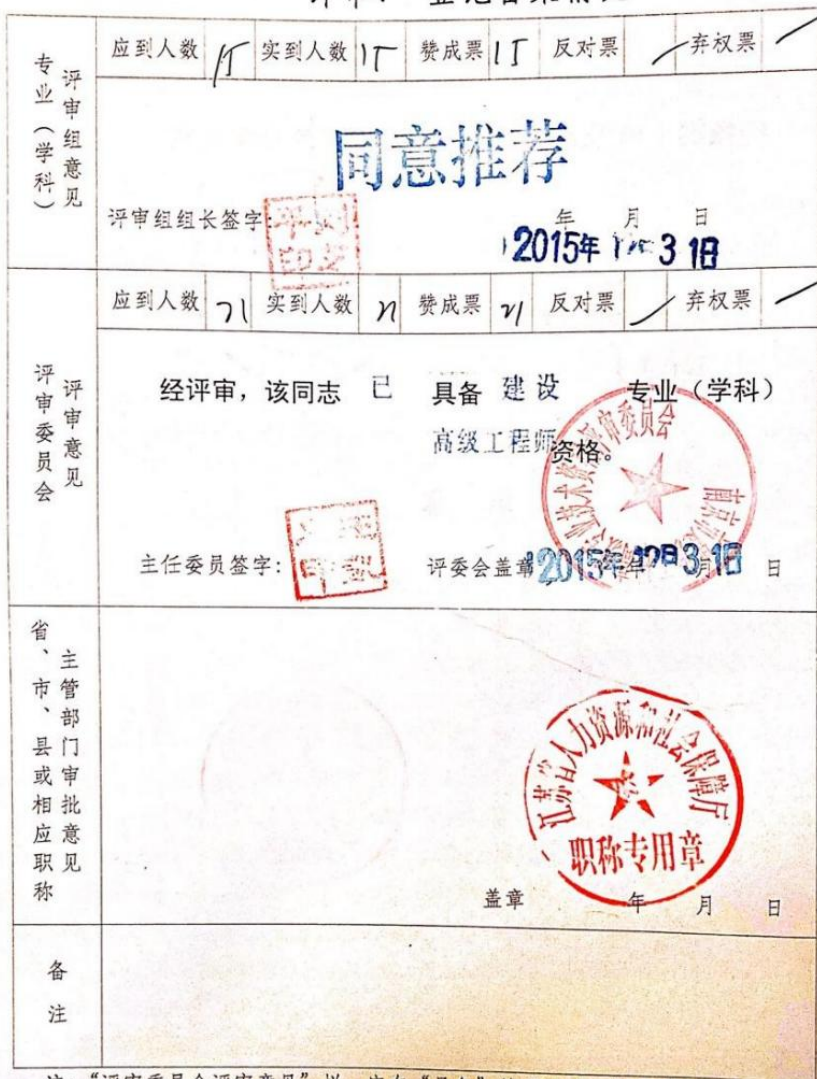 专业（学科）评审组意见
应到人数 15 实到人数 15 赞成票 15 反对票 / 弃权票 /
同意推荐
评审组组长签字:
年 月 日
2015年12月31日
评审委员会评审意见
应到人数 21 实到人数 21 赞成票 21 反对票 / 弃权票 /
经评审，该同志 已 具备 建设 专业（学科）
高级工程师 资格。
主任委员签字: 评委会盖章 年 月 日
2015年12月31日
省、市、县或相应职称主管部门审批意见
江苏省人力资源和社会保障厅
职称专用章
盖章 年 月 日
备注